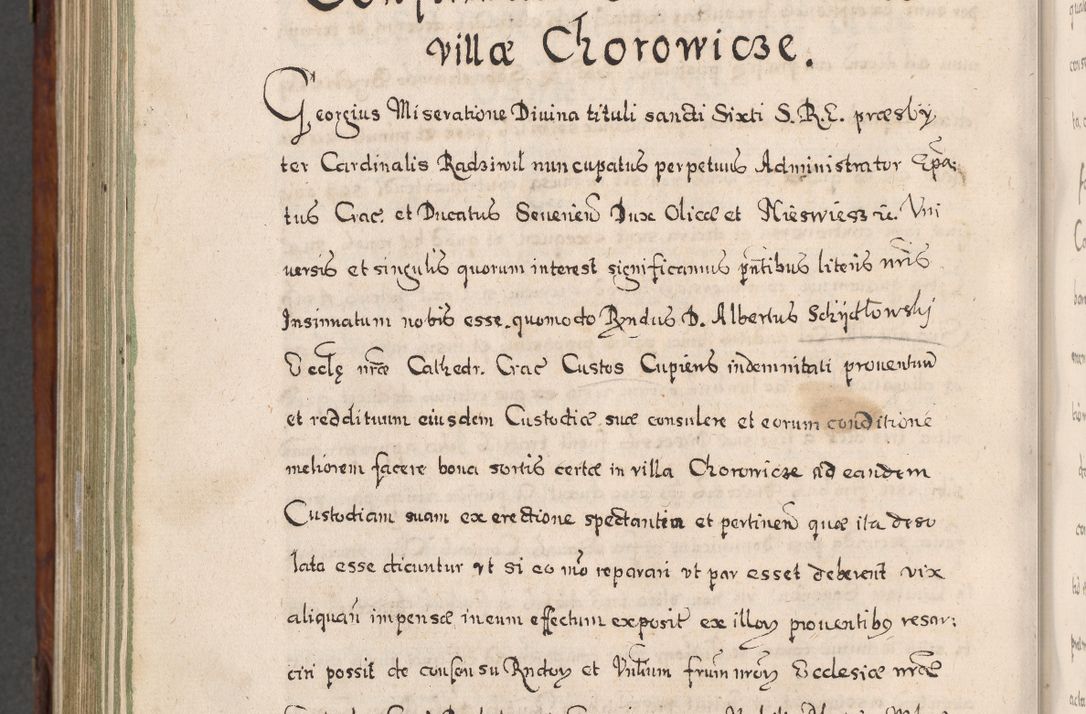 villæ Chorowicze.
Georgius Miseratione Divina tituli sancti Sixti S. R. E. præsby
ter Cardinalis Radziwil nuncupatus perpetuus Administrator Epa
tus Crac. et Ducatus Severien Dux Olicæ et Nieswiesz ic. Uni
versis et singulis quorum interest significamus pntibus literis nris
Insinuatum nobis esse, quomodo Rndus D. Albertus Schÿdłowskj
Ecclę nræ Cathedr. Crac Custos Cupiens indemnitati proventuu
et reddituum eiusdem Custodiæ suæ consulere et eorum conditione
meliorem facere bona sortis certæ in villa Chorowicze ad eandem
Custodiam suam ex erectione spectantia et pertinen quæ ita deso
lata esse dicuntur ut si eo mo reparari ut par esset deberent vix
aliquam impensæ in eum effectum exposit ex illoꝝ proventibꝫ resar:
ciri possit de consensu Rndoꝝ et Vnbilium frum nroꝝ Ecclesiæ nræ